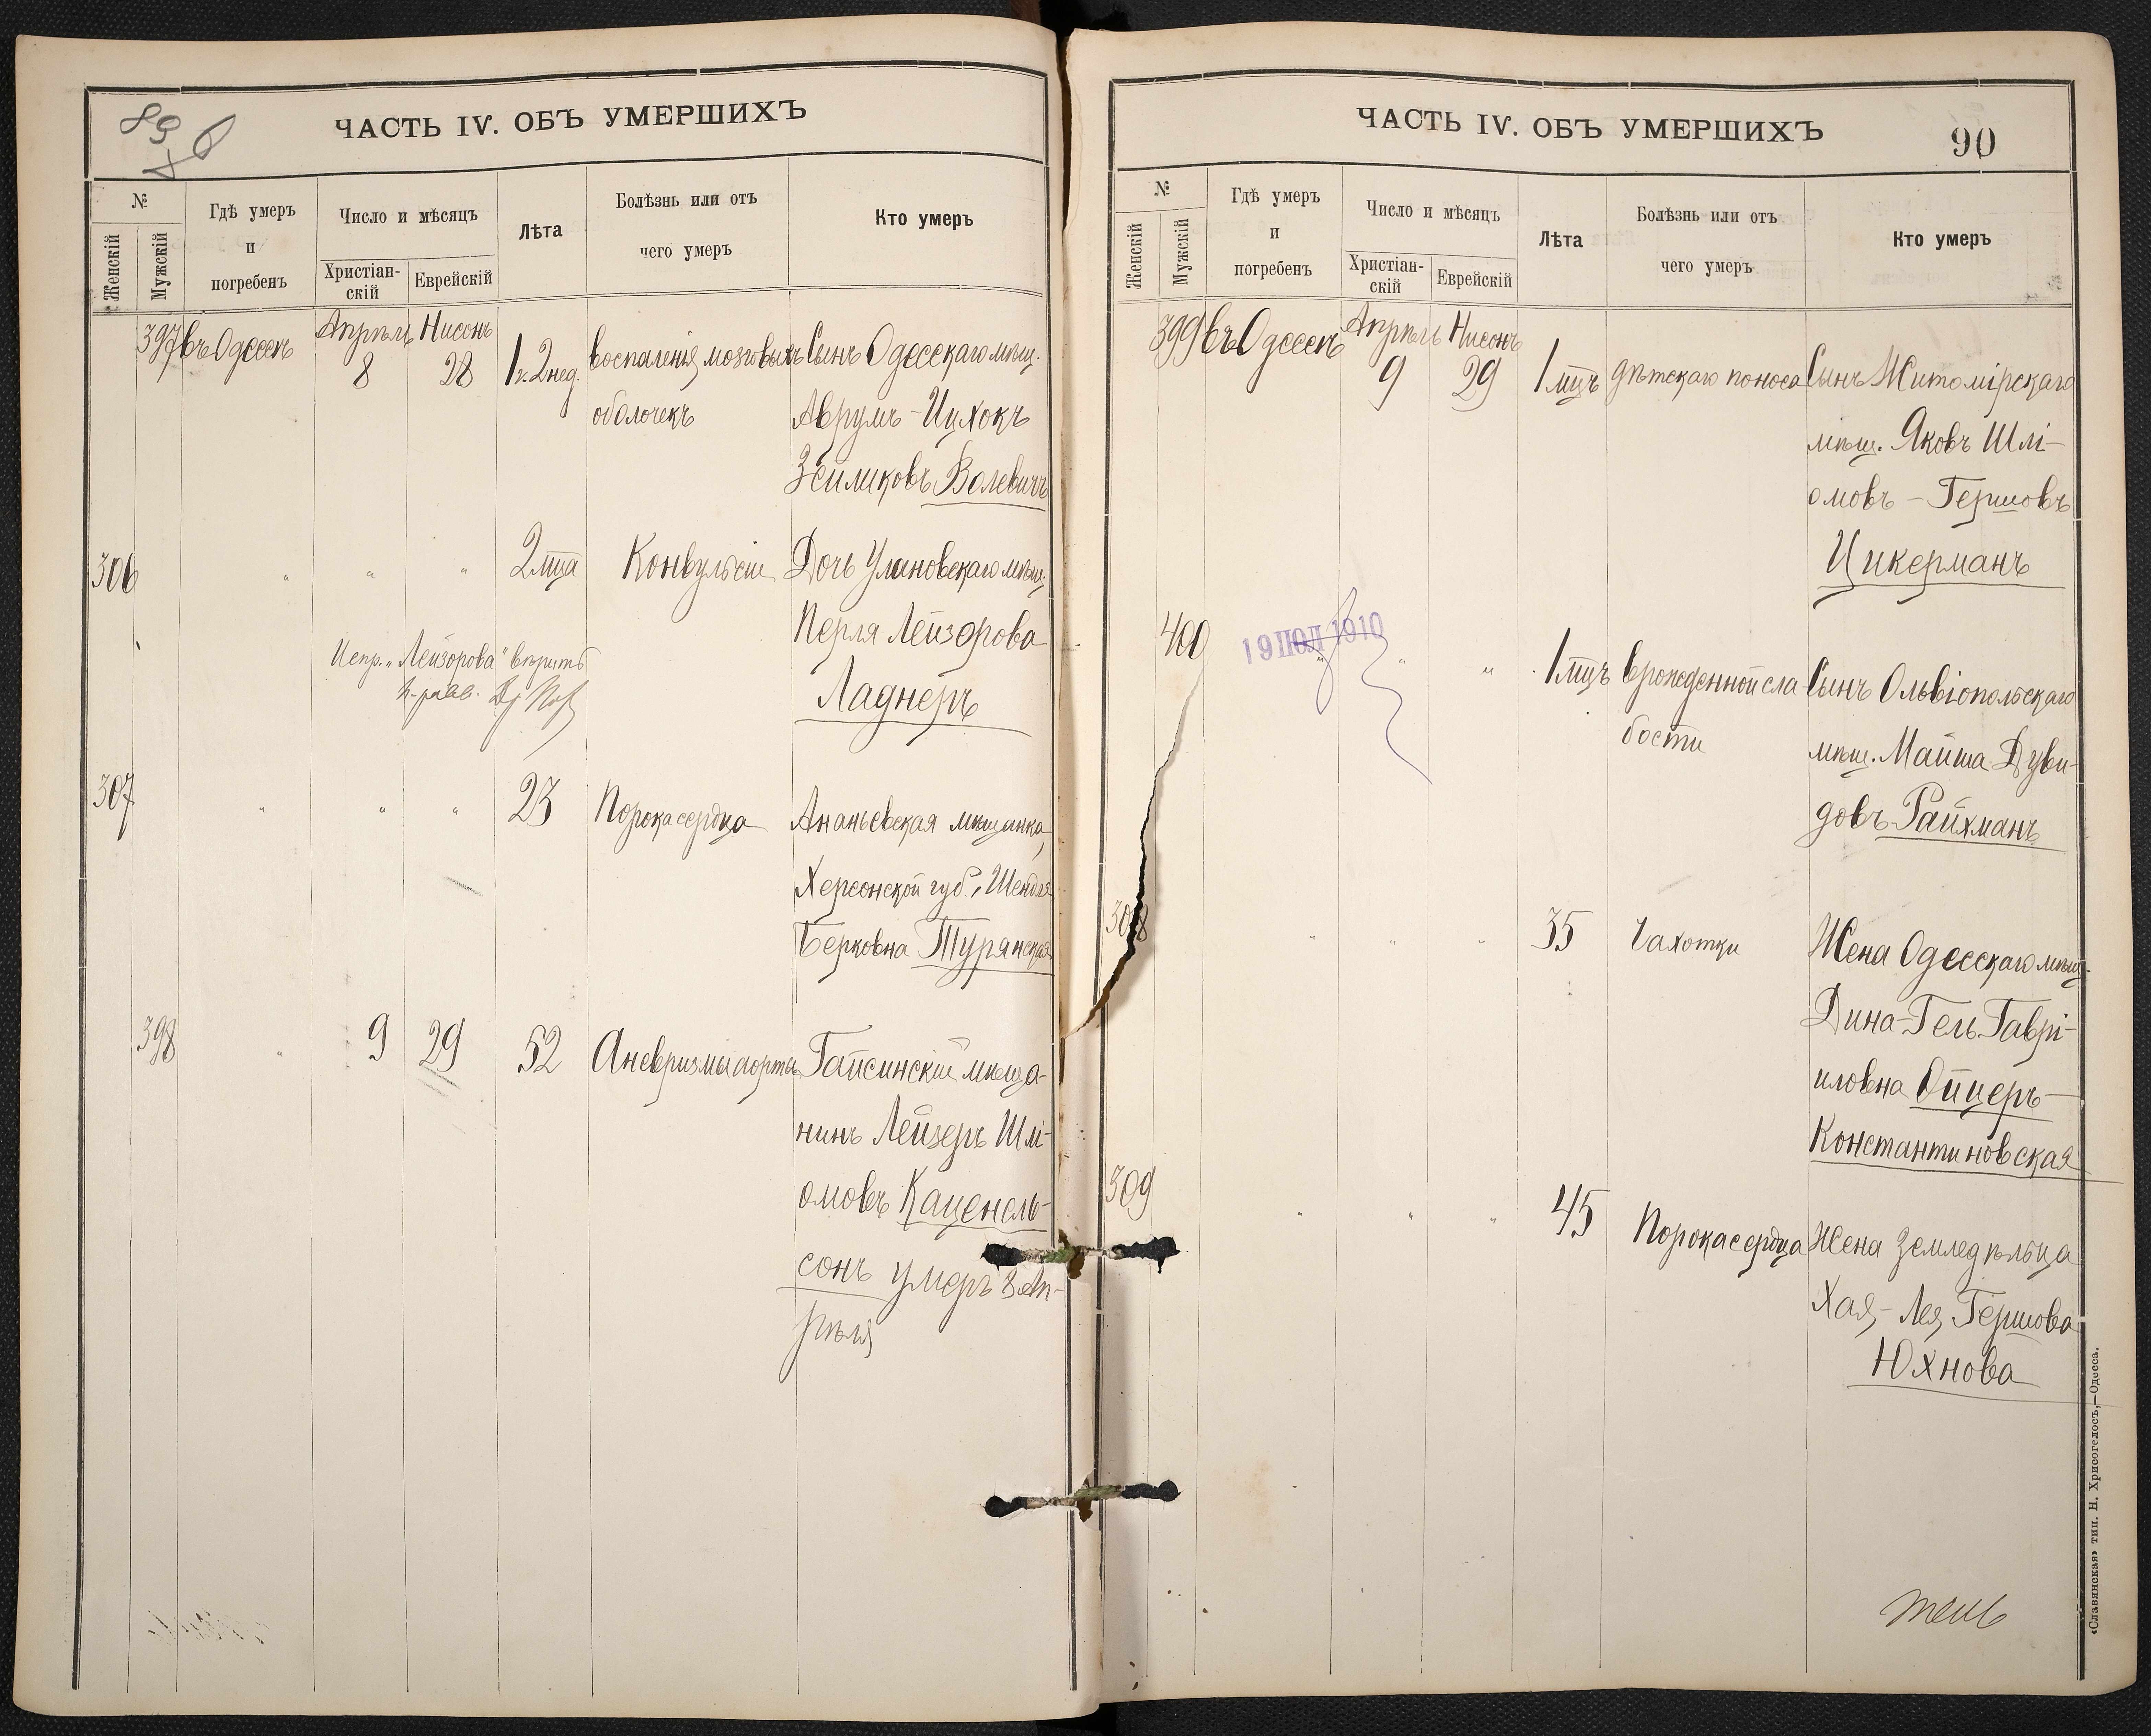 89
ЧАСТЬ IV. ОБЪ УМЕРШИХЪ
№
Женскій
Мужскій
Гдѣ умеръ
и
погребенъ
Число и мѣсяцъ
Христіан-
скій
Еврейскій
Лѣта
Болѣзнь или отъ
чего умеръ
Кто умеръ
397 въ Одессѣ Апрѣль 8 Нисонъ 28 1 г. 2 нед. воспаленія мозговыхъ Сынъ Одесскаго мѣщ.
оболочекъ Аврумъ-Ицхокъ
Зейликовъ Волевичъ
306 " " " 2 мца Конвульсіи Дочь Улановскаго мѣщ.
Перля Лейзорова
Испр. "Лейзорова" вѣрить
Ладнеръ
307 " " " 23 Порока сердца Ананьевская мѣщанка,
Херсонской губ., Шендля
Берковна Турянская
398 " 9 29 52 Аневризмы аорты Гайсинскій мѣща-
нинъ Лейзеръ Шлі-
омовъ Каценель-
сонъ умеръ 8 Ап-
рѣля
ЧАСТЬ IV. ОБЪ УМЕРШИХЪ
90
№
Женскій
Мужскій
Гдѣ умеръ
и
погребенъ
Число и мѣсяцъ
Христіан-
скій
Еврейскій
Лѣта
Болѣзнь или отъ
чего умеръ
Кто умеръ
399 въ Одессѣ Апрѣль 9 Нисонъ 29 1 мцъ дѣтскаго поноса Сынъ Житомірскаго
мѣщ. Яковъ Шлі-
омовъ-Гершовъ
Цикерманъ
400 " " " 1 мцъ врожденной сла- Сынъ Ольвіопольскаго
19 ІЮЛ 1910
бости мѣщ. Майша Дуви-
довъ Райхманъ
308 " " " 35 Чахотки Жена Одесскаго мѣщ.
Дина-Гель Гаврі-
иловна Ойцеръ-
Константиновская
309 " " " 45 Порока сердца Жена земледѣльца
Хая-Лея Гершова
Юхнова
«Славянская» тип. Н. Хрисогелосъ,—Одесса.